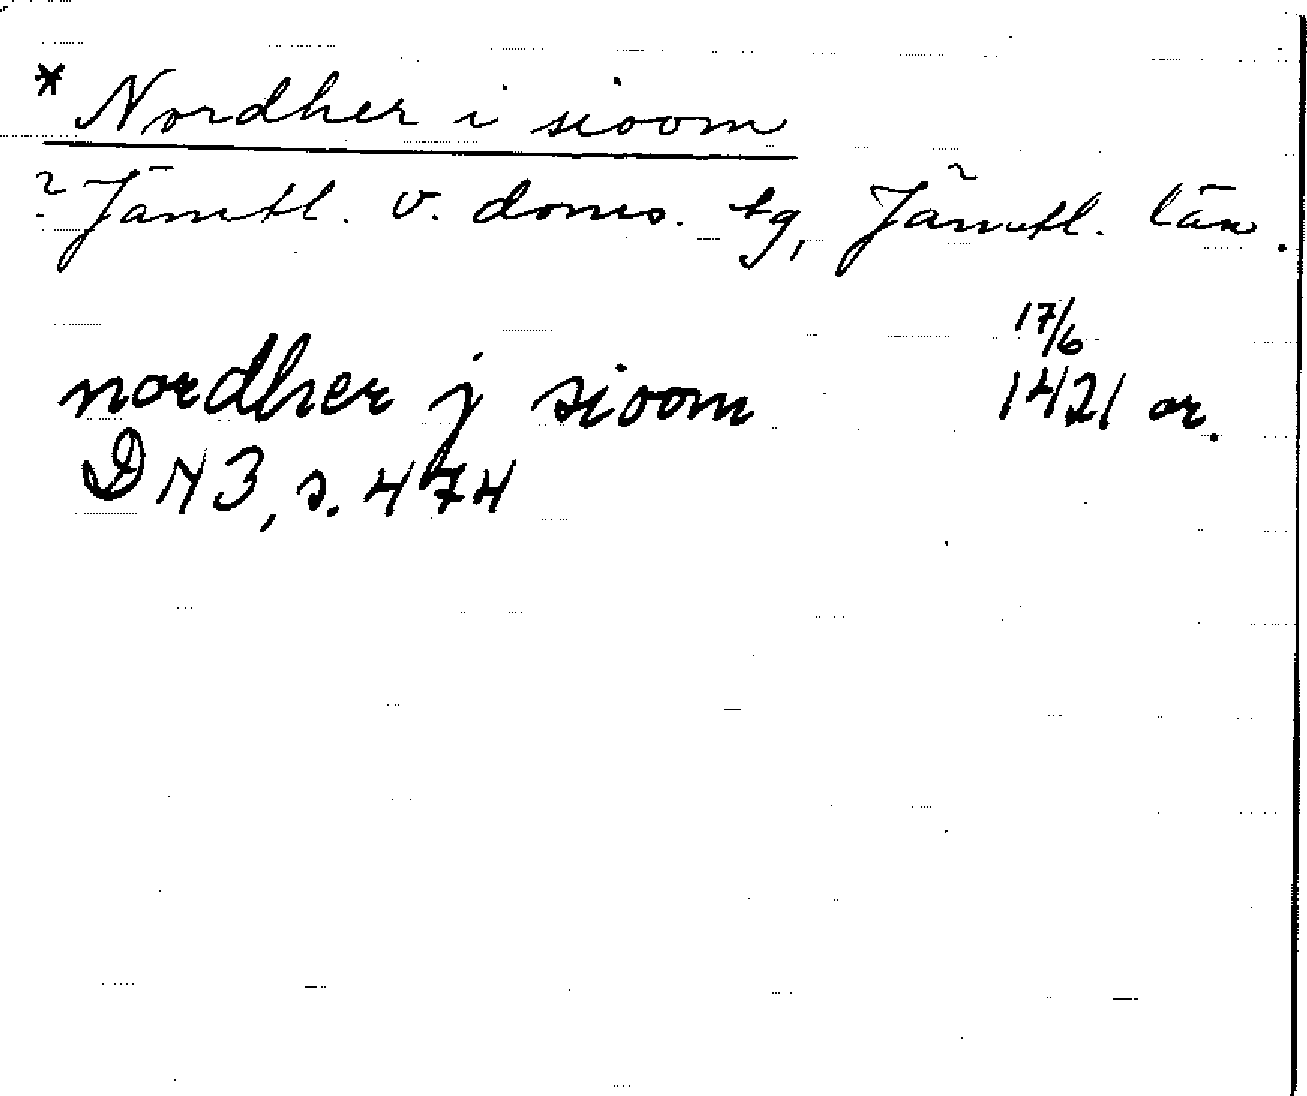 * Nordher i sioom
? Jämtl. v. doms. tg, Jämtl. län.
nordher j sioom 17/6 1421 or.
DN 3, s. 474